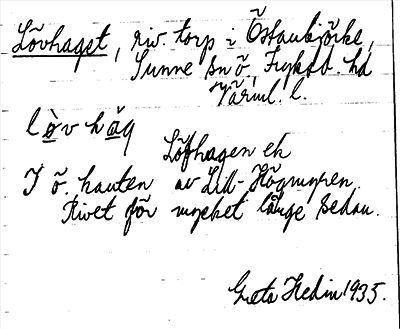 Lövhaget, riv. torp i Östanbjörke,
Sunne sn ö. Fryksd. hd
Värml. l.
lòv hàg
Löfhagen ek
I ö. kanten av Lill-Högmyren.
Rivet för mycket länge sedan.
Greta Hedin 1935.